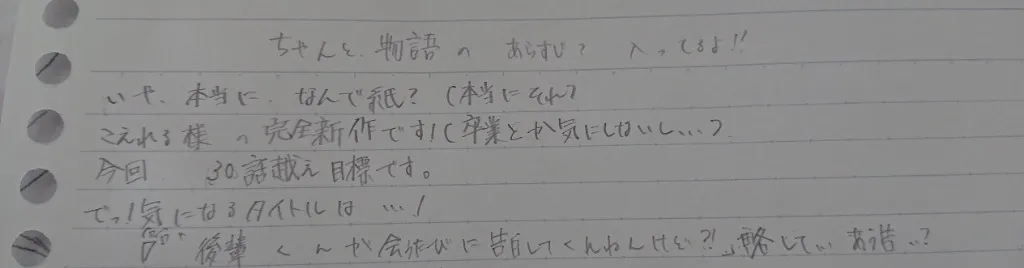 ちゃんと、物語の あらすじ? 入ってるよ!!
いや、本当に、なんで紙?(本当にそれ)
こえれる様の完全新作です!(卒業とか気にしないし…)
今回 30話越え目標です。
でっ!気になるタイトルは…!
後輩くんが に告白してくんねんけど?!」略して